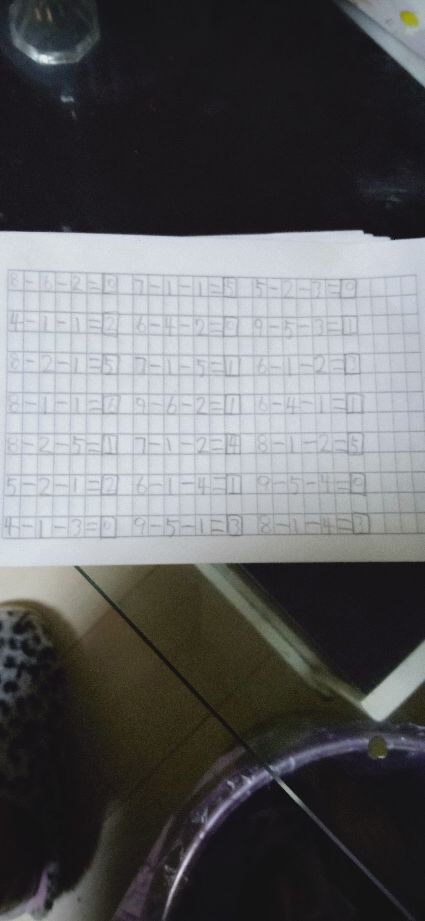 8-6-2=0 7-1-1=5 5-2-3=0
4-1-1=2 6-4-2=0 9-5-3=1
8-2-1=5 7-1-5=1 6-1-2=3
8-1-1= 9-6-2=1 6-4-1=1
8-2-5=1 7-1-2=4 8-1-2=5
5-2-1=2 6-1-4=1 9-5-4=0
4-1-3=0 9-5-1=3 8-1-4=3